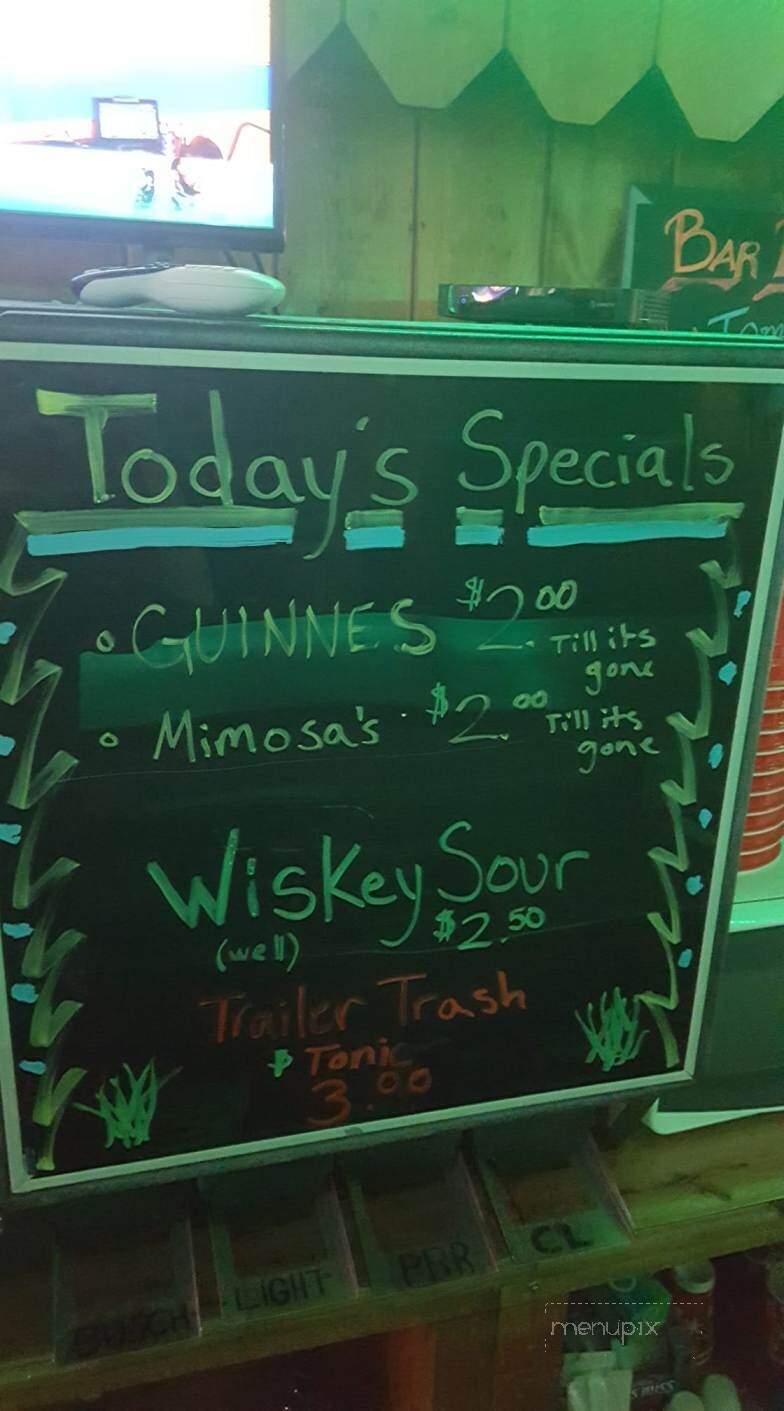 BAR
Today's Specials
GUINNES $2.00 Till its
gone
Mimosa's $2.00 Till its
gone
Wiskey Sour
(well) $2.50
Trailer Trash
$ Tonic
3.00
BUSCH LIGHT PBR CL
menupix